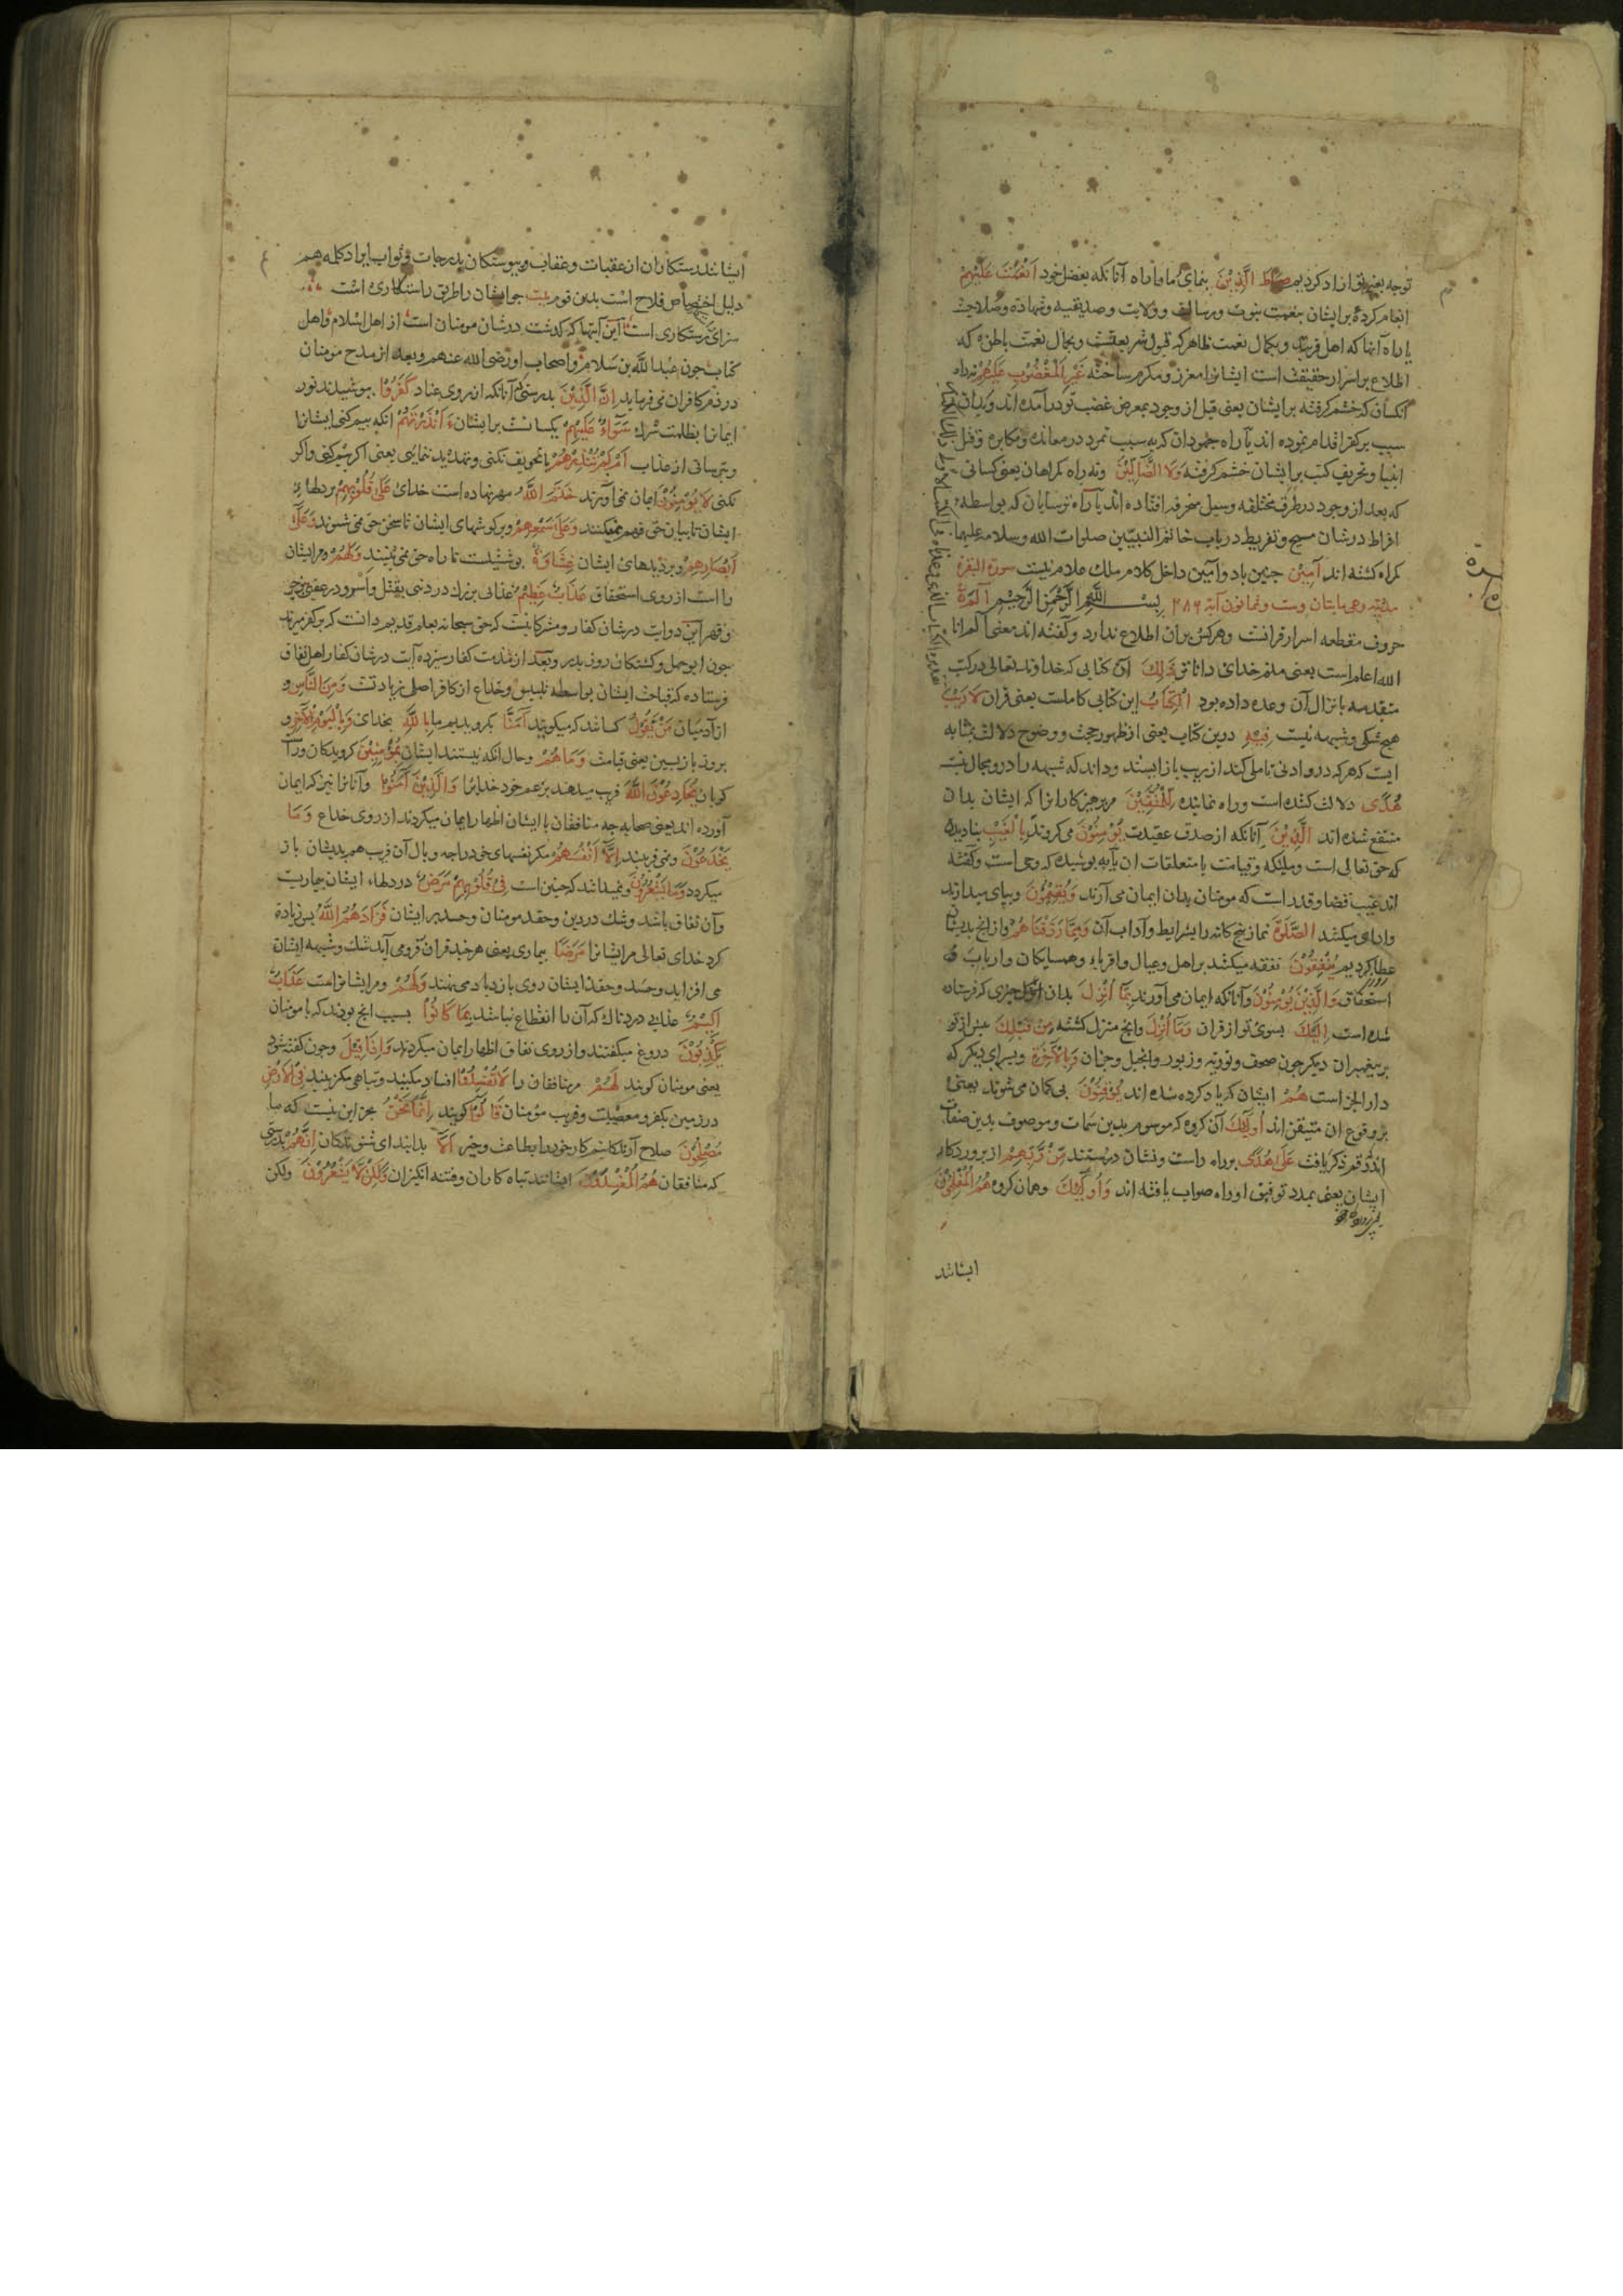 توجه بغیر تو ازاد کردیم صراط الَّذِیْنَ بنمای ما را راه آنانکه بفضل خود اَنْعَمْتَ عَلَیْهِمْ
انعام کردهٔ برایشان بنعمت نبوت ورسالت وولایت وصدیقیه وشهادة وصلاحیت
یا راه آنها که اهل قربند وبکمال نعمت ظاهر که قبول شریعتست وبجمال نعمت باطن که
اطلاع بر اسرار حقیقت است ایشانرا معزز ومکرم ساختهٔ غَیْرِ الْمَغْضُوْبِ عَلَیْهِمْ نه راه
آنکسان که خشم کرفتهٔ برایشان یعنی قبل از وجود بمعرض غضب تو درآمده اند وبدان
سبب بر کفر اقدام نموده اند یا راه جهودان که بسبب تمرد در معانده ومکابره وقتل
انبیا وتحریف کتب برایشان خشم کرفتهٔ وَلَا الضَّالِّیْنَ ونه راه کمراهان یعنی کسانی
که بعد از وجود در طرق مختلفه وسبل منحرفه افتاده اند یا راه ترسایان که بواسطه
افراط در شان مسیح وتفریط در باب خاتم النبیّین صلوات الله وسلامه علیهما
کمراه کشته اند آمِیْن چنین باد وآمین داخل کلام ملک علام نیست سورة البقرة
مدنیّه وهی مایتان وست وثمانون آیة ۲۸۶ بِسْــمِ اللّٰهِ الرَّحْمٰنِ الرَّحِیْمِ الٓمٓ
حروف مقطعه اسرار قرانست وهرکس بران اطلاع ندارد وکفته اند معنی الم انا
الله اعلم است یعنی منم خدای داناتر ذٰلِکَ آن کتابی که خداوند تعالی در کتب
متقدمه بانزال آن وعده داده بود الْکِتَابُ این کتابی کاملست یعنی قران لَا رَیْبَ
هیچ شکی وشبهه نیست فِیْهِ درین کتاب یعنی از ظهور حجت ووضوح دلالت بمثابه
ایست که هرکه درو ادنی تاملی کند از ریب باز ایستد وداند که شبهه را درو مجال نیست
هُدًی دلالت کننده است وراه نماینده لِلْمُتَّقِیْنَ مر پرهیزکارانرا که ایشان بدان
منتفع شده اند الَّذِیْنَ آنانکه از صدق عقیدت یُؤْمِنُوْنَ می کروند بِالْغَیْبِ بنادیده
که حق تعالی است وملئکه وقیامت با متعلقات ان یا به پوشیده که وحی است وکفته
اند غیب قضا وقدر است که مومنان بدان ایمان می آرند وَیُقِیْمُوْنَ وبپای میدارند
وادا می میکنند الصَّلٰوةَ نماز پنج کانه را بشرایط وآداب آن وَمِمَّا رَزَقْنَاهُمْ واز انچ بدیشان
عطا کردیم یُنْفِقُوْنَ نفقه میکنند بر اهل وعیال واقرباء وهمسایکان وارباب
استحقاق وَالَّذِیْنَ یُؤْمِنُوْنَ وآنانکه ایمان می آورند بِمَا اُنْزِلَ بدان چیزی که فرستاده
شده است اِلَیْکَ بسوی تو از قران وَمَا اُنْزِلَ وانچ منزل کشته مِنْ قَبْلِکَ پیش از تو
بر پیغمبران دیکر چون صحف وتوریة وزبور وانجیل وجزان وَبِالْآخِرَةِ وبسرای دیکر که
دار الجزاست هُمْ ایشان که یاد کرده شده اند یُوْقِنُوْنَ بی کمان می شوند یعنی
بر وقوع ان متیقن اند اُولٰئِکَ آن کروه که موسوم بدین سمات وموصوف بدین صفات
اند رقم ذکر یافت عَلٰی هُدًی بر راه راست ونشان درستند مِنْ رَبِّهِمْ از پروردکار
ایشان یعنی بمدد توفیق او راه صواب یافته اند وَاُولٰئِکَ وهمان کروه هُمُ الْمُفْلِحُوْنَ
ایشانند
ایشانند رستکاران از عقبات وعقاب وپیوستکان بدرجات وثواب ایراد کلمه هم
دلیل اختصاص فلاح است بدین قوم بیت جوایشان را طریق راستکاری است
سزای رستکاری است این آیتها که کذشت در شان مومنان است از اهل اسلام واهل
کتاب چون عبد اللّٰه بن سلام واصحاب او رضی الله عنهم وبعد از مدح مومنان
در ذم کافران می فرماید اِنَّ الَّذِیْنَ بدرستی آنانکه از روی عناد کَفَرُوْا بپوشیدند نور
ایمانرا بظلمت شرک سَوَآءٌ عَلَیْهِمْ یکسانست برایشان ءَاَنْذَرْتَهُمْ انکه بیم کنی ایشانرا
وبترسانی از عذاب اَمْ لَمْ تُنْذِرْهُمْ یا تخویف نکنی وتهدید ننمائی یعنی اکر بیم کنی واکر
نکنی لَا یُؤْمِنُوْنَ ایمان نمی آورند خَتَمَ اللّٰهُ مهر نهاده است خدای عَلٰی قُلُوْبِهِمْ بر دلهای
ایشان تا بیان حق فهم نمیکنند وَعَلٰی سَمْعِهِمْ وبر کوشهای ایشان تا سخن حق نمی شنوند وَعَلٰی
اَبْصَارِهِمْ وبر دیدهای ایشان غِشَاوَةٌ پوششیست تا راه حق نمی بینند وَلَهُمْ ومر ایشان
را است از روی استحقاق عَذَابٌ عَظِیْمٌ عذابی بزرک در دنیی بقتل واسر ودر عقبی
وقهر این دو ایت در شان کفار ومشرکانست که حق سبحانه بعلم قدیم دانست که بر کفر میرند
چون ابو جهل وکشتکان روز بدر وبعد از مذمت کفار سیزده آیت در شان کفار اهل نفاق
فرستاده که قباحت ایشان بواسطه تلبیس وخداع از کافر اصلی زیادتست وَمِنَ النَّاسِ و
از آدمیان مَنْ یَّقُوْلُ کسانند که میکویند آمَنَّا بکرویدیم ما بِاللّٰهِ بخدای وَبِالْیَوْمِ الْآخِرِ و
بروز بازپسین یعنی قیامت وَمَا هُمْ وحال آنکه نیستند ایشان بِمُؤْمِنِیْنَ کرویدکان
یُخَادِعُوْنَ اللّٰهَ فریب میدهند بزعم خود خدایرا وَالَّذِیْنَ آمَنُوْا وآنانرا نیز که ایمان
آورده اند یعنی صحابه چه منافقان با ایشان اظهار ایمان میکردند از روی خداع وَمَا
یَخْدَعُوْنَ ونمی فریبند اِلَّا اَنْفُسَهُمْ مکر نفسهای خود را چه وبال آن فریب هم بدیشان باز
میکردد وَمَا یَشْعُرُوْنَ ونمیدانند که چنین است فِیْ قُلُوْبِهِمْ مَرَضٌ در دلهاء ایشان بیماریست
وآن نفاق باشد وشک در دین وحقد مومنان وحسد بر ایشان فَزَادَهُمُ اللّٰهُ پس زیادة
کرد خدای تعالی مر ایشانرا مَرَضًا بیماری یعنی هرچند قران فرو می آید شک وشبهه ایشان
می افزاید وحسد وحقد ایشان روی بازدیاد می نهند وَلَهُمْ ومر ایشانراست عَذَابٌ
اَلِیْمٌ عذابی دردناک که آن را انقطاع نباشد بِمَا کَانُوْا بسبب انچ بودند که با مومنان
یَکْذِبُوْنَ دروغ میکفتند واز روی نفاق اظهار ایمان میکردند وَاِذَا قِیْلَ وچون کفته شود
یعنی مومنان کویند لَهُمْ مر منافقان را لَا تُفْسِدُوْا افساد مکنید وتباهی مکزینید فِی الْاَرْضِ
در زمین بکفر ومعصیت وفریب مؤمنان قَالُوْا کویند اِنَّمَا نَحْنُ بجز این نیست که ما
مُصْلِحُوْنَ صلاح آرندکانیم کار خود را بطاعت وخیر اَلَا بدانید ای شنوندکان اِنَّهُمْ بدرستی
که منافقان هُمُ الْمُفْسِدُوْنَ ایشانند تباه کاران وفتنه انکیزان وَلٰکِنْ لَّا یَشْعُرُوْنَ ولکن